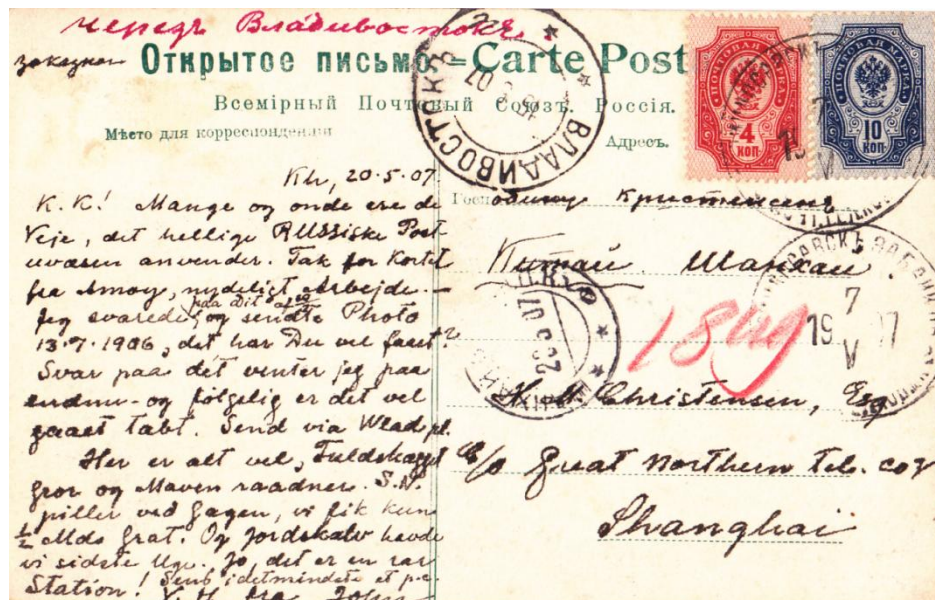 черезъ Владивостокъ
заказное
Открытое письмо = Carte Post
Всемірный Почтовый Союзъ. Россія.
Мѣсто для корреспонденціи
Адресъ.
ПОЧТОВАЯ МАРКА
4 КОП
ПОЧТОВАЯ МАРКА
10 КОП
ВЛАДИВОСТОКЪ
Kh, 20.5.07
K.K.! Mange og onde ere de
Veje, det hellige Russiske Post
væsen anvender. Tak for Kortet
fra Amoy, nydeligt Arbejde.
Jeg svarede paa dit og sendte Photo
13.7.1906, det har Du vel faaet?
Svar paa det venter jeg paa
endnu - og følgelig er det vel
gaaet tabt. Send via Wlad.
Her er alt vel, Fuldskægget
gror og Maven raadner. S.N.
piller ved Gagen, vi fik kun
½ Mds Grat. Og Jordskælv havde
vi sidste Uge. Jo, det er en rar
Station! Send idetmindste et
John
Кристенсенъ
Китай. Шанхай
19 7 V 07
1849
H. M. Christensen, Esq
c/o Great Northern Tel. Coy
Shanghai